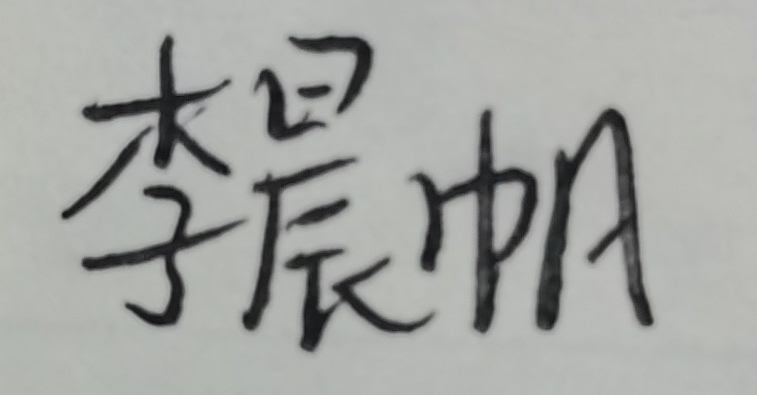 李晨帆